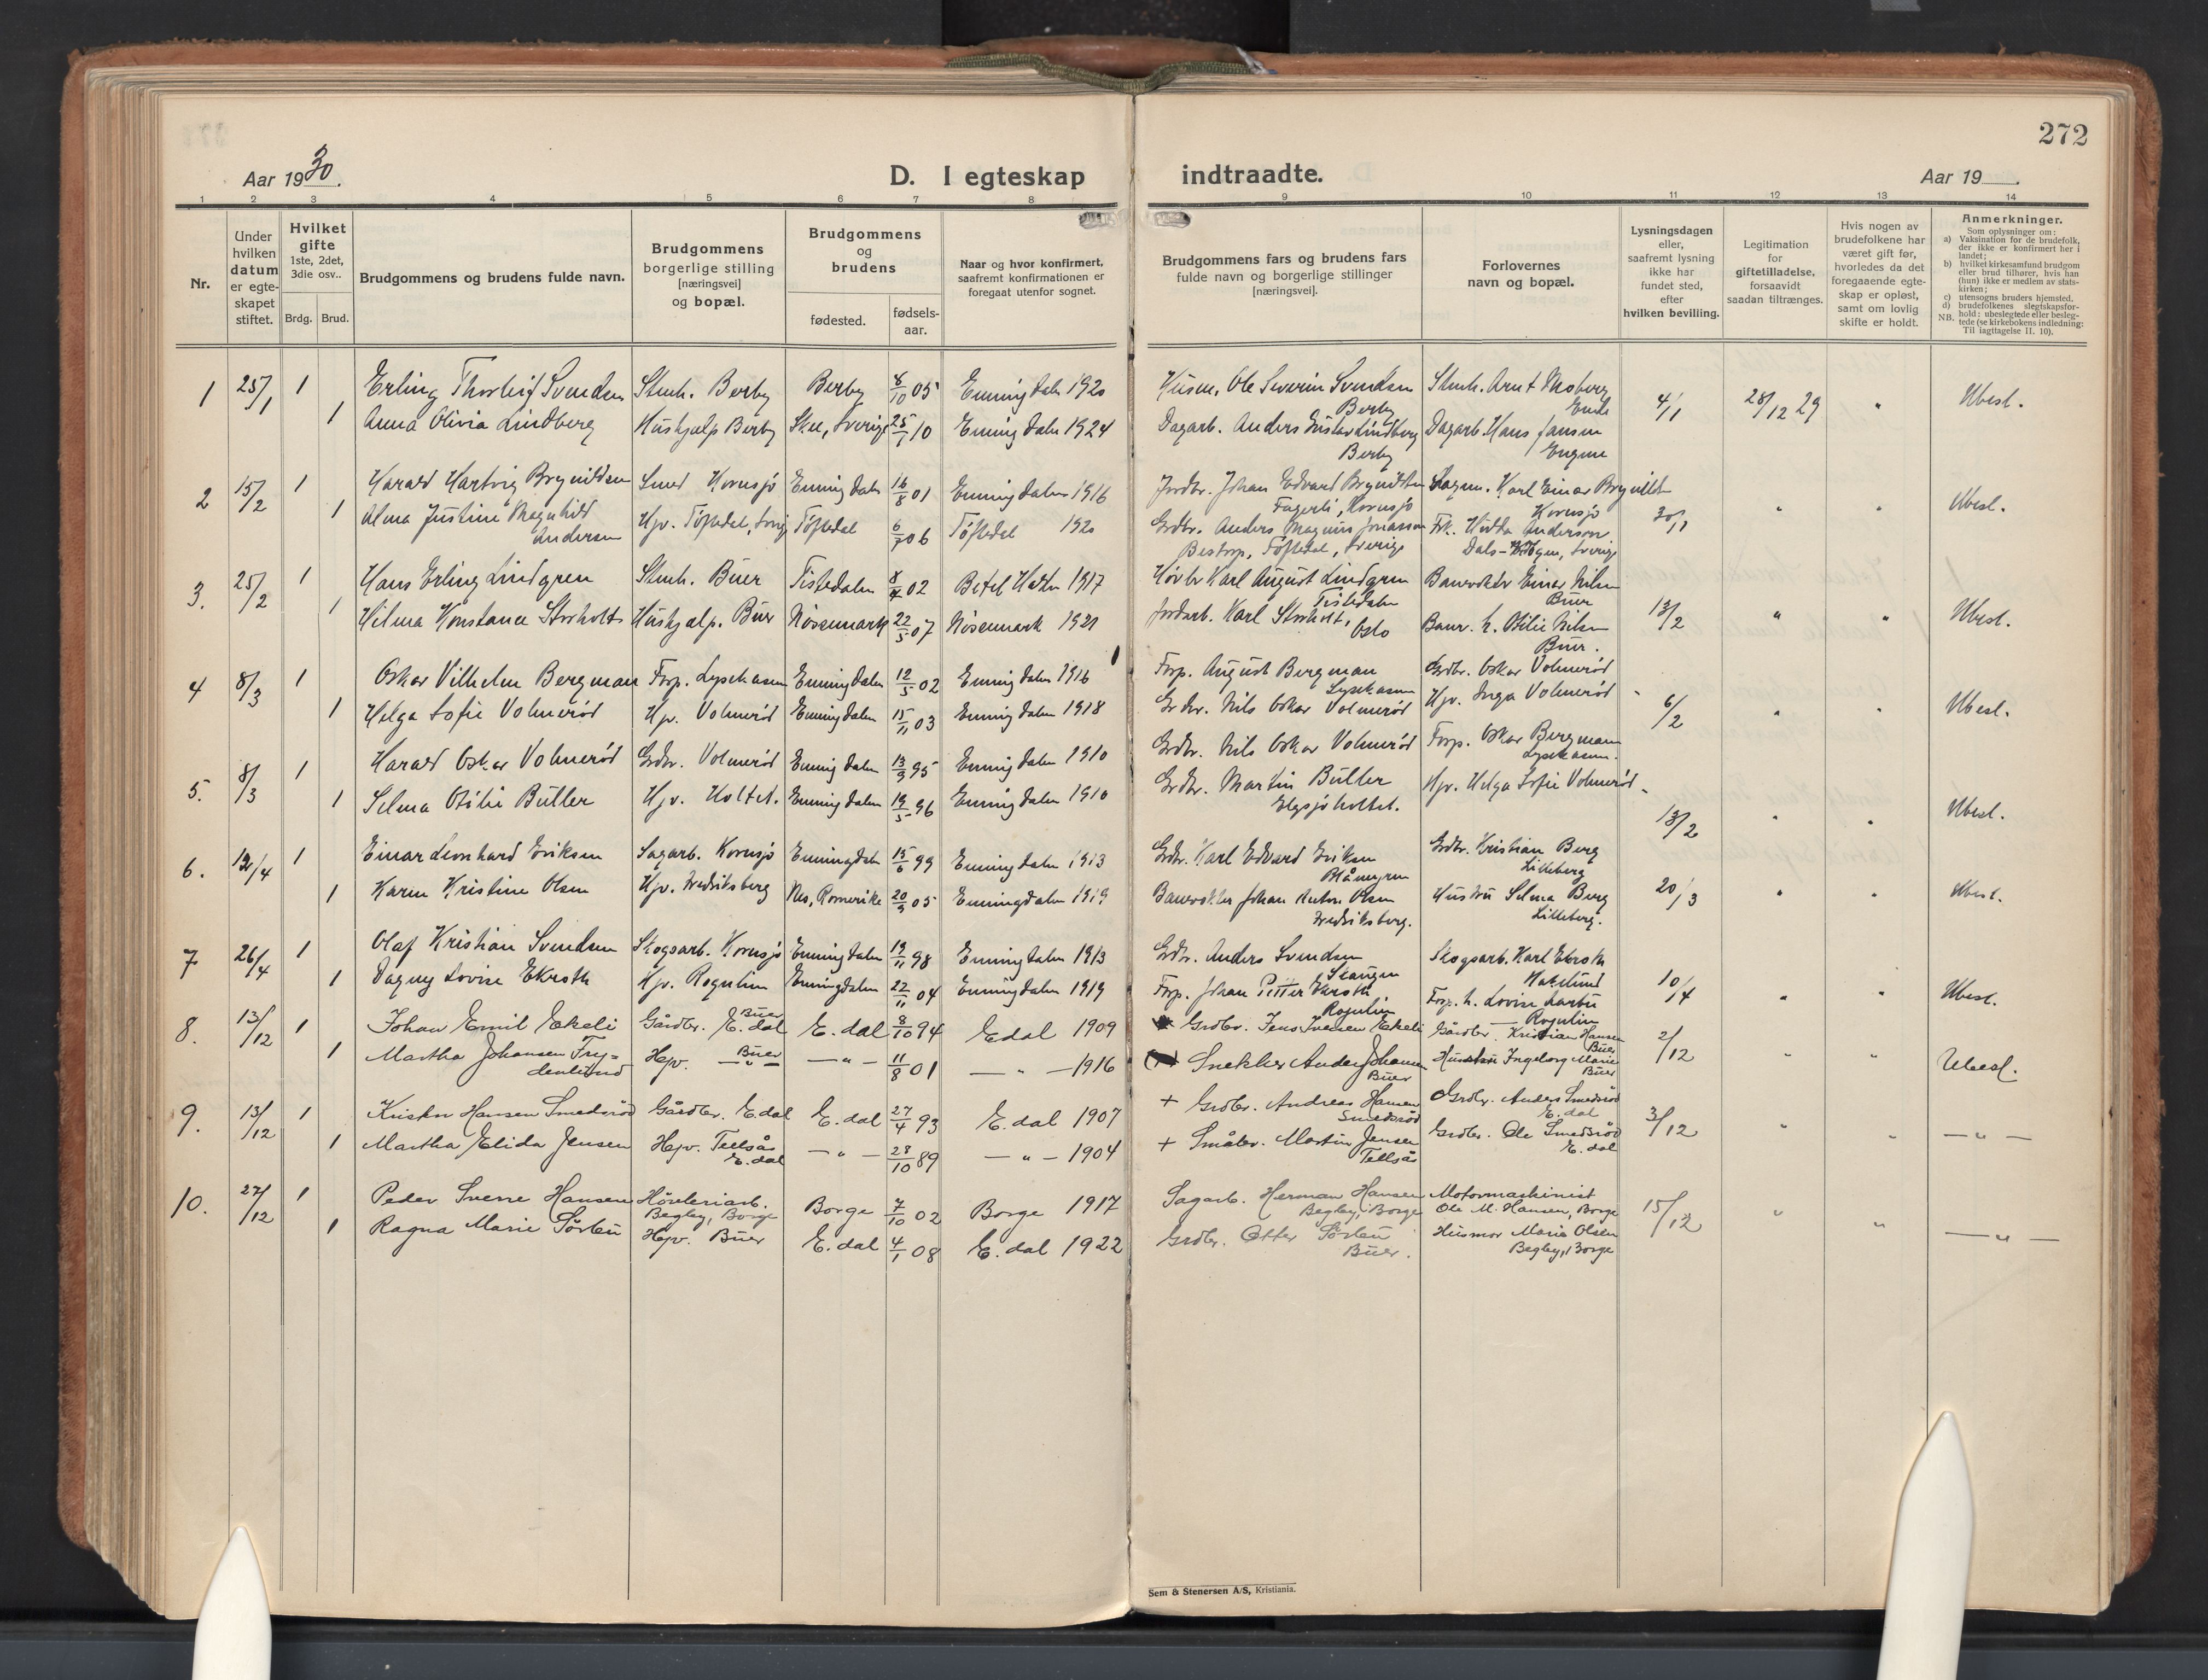 272
Aar 1930.
D. I egteskap
indtraadte.
Aar 19 .
1 2 3 4 5 6 7 8 9 10 11 12 13 14
Nr.
Under hvilken datum er egteskapet stiftet.
Hvilket gifte 1ste, 2det, 3die osv..
Brdg. Brud.
Brudgommens og brudens fulde navn.
Brudgommens borgerlige stilling [næringsvei] og bopæl.
Brudgommens og brudens
fødested.
fødselsaar.
Naar og hvor konfirmert, saafremt konfirmationen er foregaat utenfor sognet.
Brudgommens fars og brudens fars fulde navn og borgerlige stillinger [næringsvei].
Forlovernes navn og bopæl.
Lysningsdagen eller, saafremt lysning ikke har fundet sted, efter hvilken bevilling.
Legitimation for giftetilladelse, forsaavidt saadan tiltrænges.
Hvis nogen av brudefolkene har været gift før, hvorledes da det foregaaende egteskap er opløst, samt om lovlig skifte er holdt.
Anmerkninger.
Som oplysninger om:
a) Vaksination for de brudefolk, der ikke er konfirmert her i landet;
b) hvilket kirkesamfund brudgom eller brud tilhører, hvis han (hun) ikke er medlem av statskirken;
c) utensogns bruders hjemsted.
d) brudefolkenes slegtskapsforhold: ubeslegtede eller beslegtede (se kirkebokens indledning: NB. Til iagttagelse II. 10).
1 25/1 1 Erling Thorleif Svendsen Stenh. Berby Berby 8/10 05 Enningdalen 1920 Husm. Ole Severin Svendsen Berby Stenh. Arnt Moberg 4/1 28/12 29 " Ubesl.
1 Anna Olivia Lindberg Hushjælp Berby Skee, Sverige 25/1 10 Enningdalen 1924 Dagarb. Anders Gustav Lindberg Berby Dagarb. Hans Jansen
2 15/2 1 Harald Hartvig Brynildsen Smed Kornsjø Enningdalen 16/8 01 Enningdalen 1916 Jordbr. Johan Edvard Bryndilsen Fagerli, Kornsjø Sagm. Karl Einar Brynildsen Kornsjø 30/1 " " Ubesl.
1 Alma Justine Magnhild Andersen Hjv. Töftedal, Sverig Töftedal 6/7 06 Töftedal 1920 Grdbr. Anders Magnus Jonasson Bestorp, Töftedal, Sverige Frk. Hulda Anderson Sverige
3. 25/2 1 Hans Erling Lindgren Stenh. Buer Tistedalen 02 Betel Halden 1917 Karl August Lindgren Tistedalen Banevokter Einar Nilsen Buer 13/2 " " Ubesl.
1 Hilma Konstance Storholts Hushjælp. Buer Nössemark 22/5 07 Nössemark 1921 Jordarb. Karl Storholt, Oslo Banv. h. Otilie Nilsen Buer.
4 8/3 1 Oskar Vilhelm Bergman Forp. Lysekasen Enningdalen 12/5 02 Enningdalen 1916 Forp. August Bergman Lysekasen Grdbr. Oskar Volmerød 6/2 " " Ubesl.
1 Helga Sofie Volmerød Hjv. Volmerød Enningdalen 15/11 03 Enningdalen 1918 Grdbr. Nils Oskar Volmerød Hjv. Inga Volmerød
5. 8/3 1 Harald Oskar Volmerød Grdbr. Volmerød Enningdalen 13/9 95 Enningdalen 1910 Grdbr. Nils Oskar Volmerød Forp. Oskar Bergman Lysekasen. 13/2 " " Ubesl.
1 Selma Otilie Buller Hjv. Holtet. Enningdalen 19/5 96 Enningdalen 1910 Grdbr. Martin Buller Elgsjøholtet. Hjv. Helga Sofie Volmerød
6. 12/4 1 Einar Leonhard Eriksen Sagarb. Kornsjø Enningdalen 15/6 99 Enningdalen 1913 Grdbr. Karl Edvard Eriksen Blåmyren Grdbr. Kristian Berg Lilleberg 20/3 " " Ubesl.
1 Karen Kristine Olsen Hjv. Fredriksberg Nes, Romerike 20/9 05 Enningdalen 1919 Banevokter Johan Anton Olsen Fredriksberg. Hustru Selma Berg Lilleberg.
7 26/4 1 Olaf Kristian Svendsen Skogsarb. Kornsjø Enningdalen 19/11 98 Enningdalen 1913 Grdbr. Anders Svendsen Skaugen Skogsarb. Karl Ekroth 10/4 " " Ubesl.
1 Dagny Lovise Ekroth Hjv. Rogulien Enningdalen 22/11 04 Enningdalen 1919 Forp. Johan Petter Ekroth Rogulien Forp. h. Lovise Rogulien
8. 13/12 1 Johan Emil Ekeli Gårdbr. Buer E. dal E. dal 8/10 94 Edal 1909 Grdbr. Jens Iversen Ekeli Gårdbr. Kristian Hansen Buer 2/12 " " Ubesl.
1 Martha Johansen Frydenlund Hjv. Buer — " — — " — 11/8 01 — " — 1916 Snekker Anders Johansen Buer Hustru Ingeborg Marie Buer
9. 13/12 1 Kristen Hansen Smedsrød Gårdbr. Edal E. dal 27/4 93 E. dal 1907 + Grdbr. Andreas Hansen Smedsrød Grdbr. Anders Smedsrød E. dal 3/12 " " — " —
1 Martha Elida Jensen Hjv. Tellsås E. dal — " — 28/10 89 — " — 1904 + Småbr. Martin Jensen Tellsås Grdbr. Ole Smedsrød E. dal
10. 27/12 1 Peder Sverre Hansen Høvleriarb. Begby, Borge Borge 7/10 02 Borge 1917 Sagarb. Herman Hansen Begby, Borge Motormaskinist Ole M. Hansen, Borge 15/12 " " — " —
1 Ragna Marie Sørbu Hjv. Buer E. dal 4/1 08 E. dal 1922 Grdbr. Otter Sørbu Buer. Husmor Marie Olsen Begby, Borge
Sem & Stenersen A/S, Kristiania.